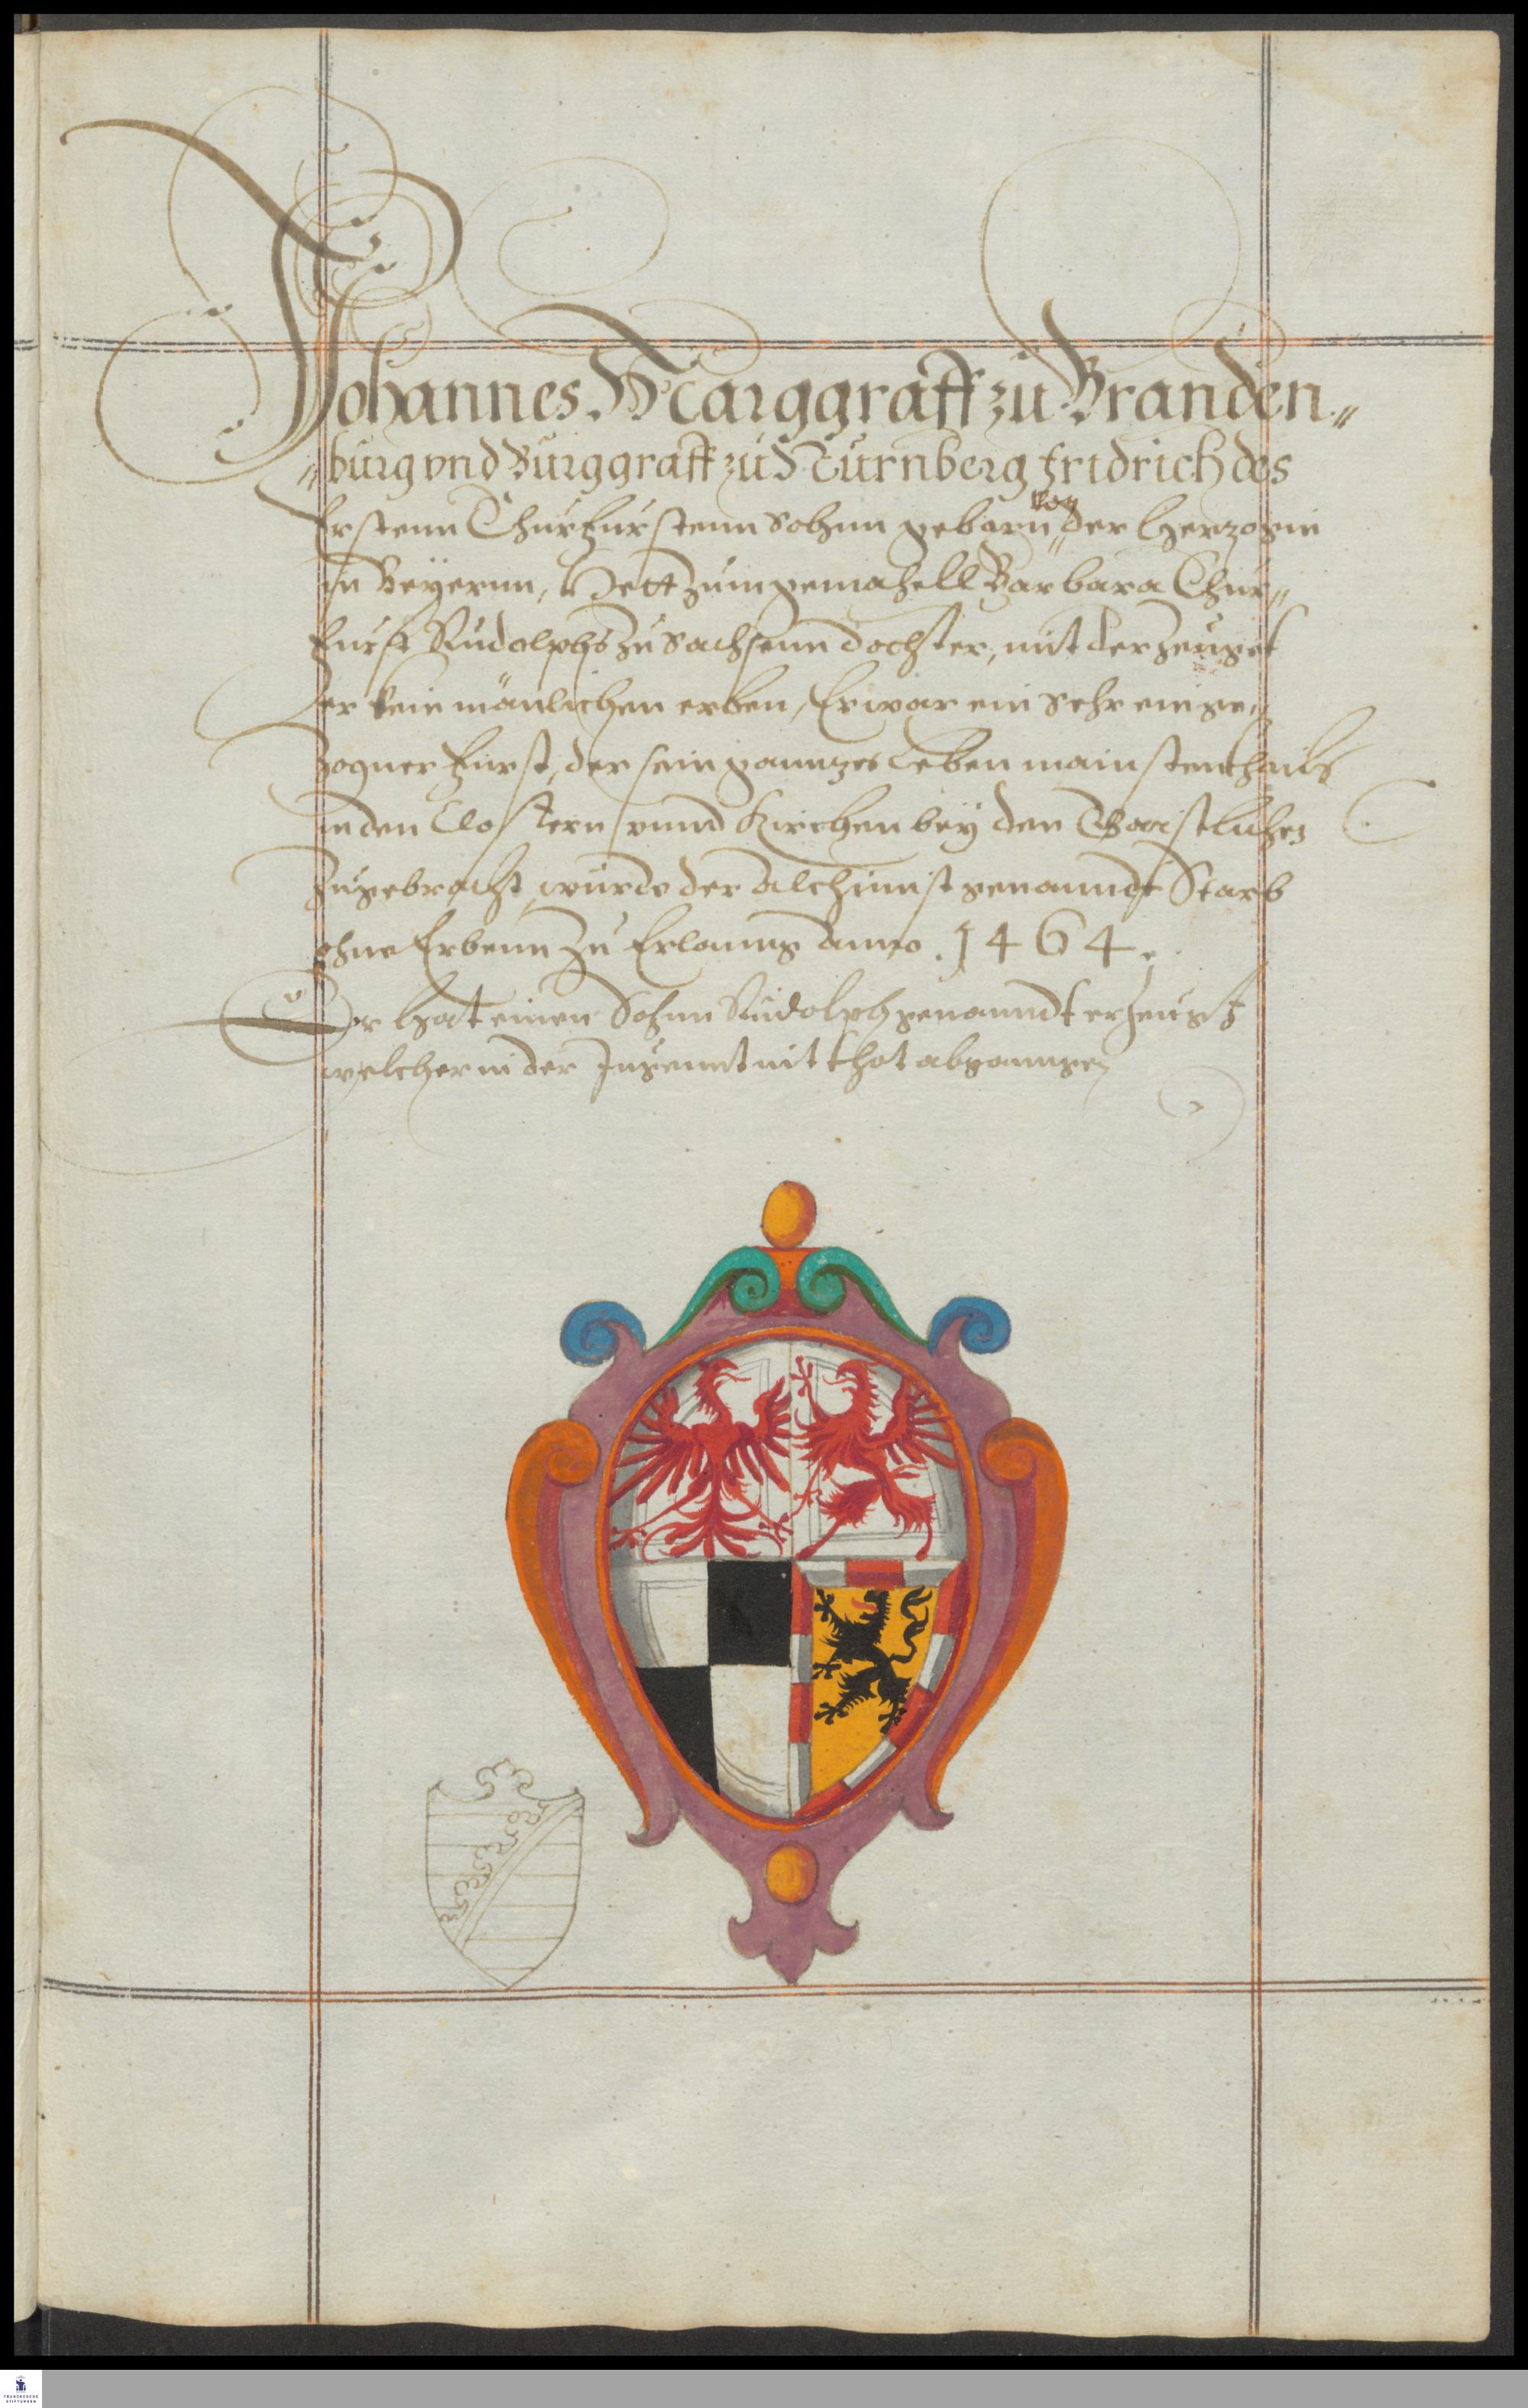 Johannes Marggraff zu Branden„
„burg vnd Burggraff zu Nurnberg fridrich des
Erstenn Churfurstenn Sohnn geborn von der Herzogin
in Beyernn, Hett zum gemahell Barbara Chur„
furst Rudolphs zu Sachsenn dochter, mit der zeuget
er kein mänlichen erben, Er war ein sehr einge„
zogner furst, der sein ganntzes leben mainstenthails
in den Clostern vnnd Kirchen bey den Gaistlichen
zugebracht, wurde der Alchimist genanndt Starb
ohne Erbenn zu Erlanng Anno . 1464 .
Er hat einen Sohnn Rudolph genanndt erzeugt
welcher in der Jugennt mit thot abganngen
FRANCKESCHE
STIFTUNGEN